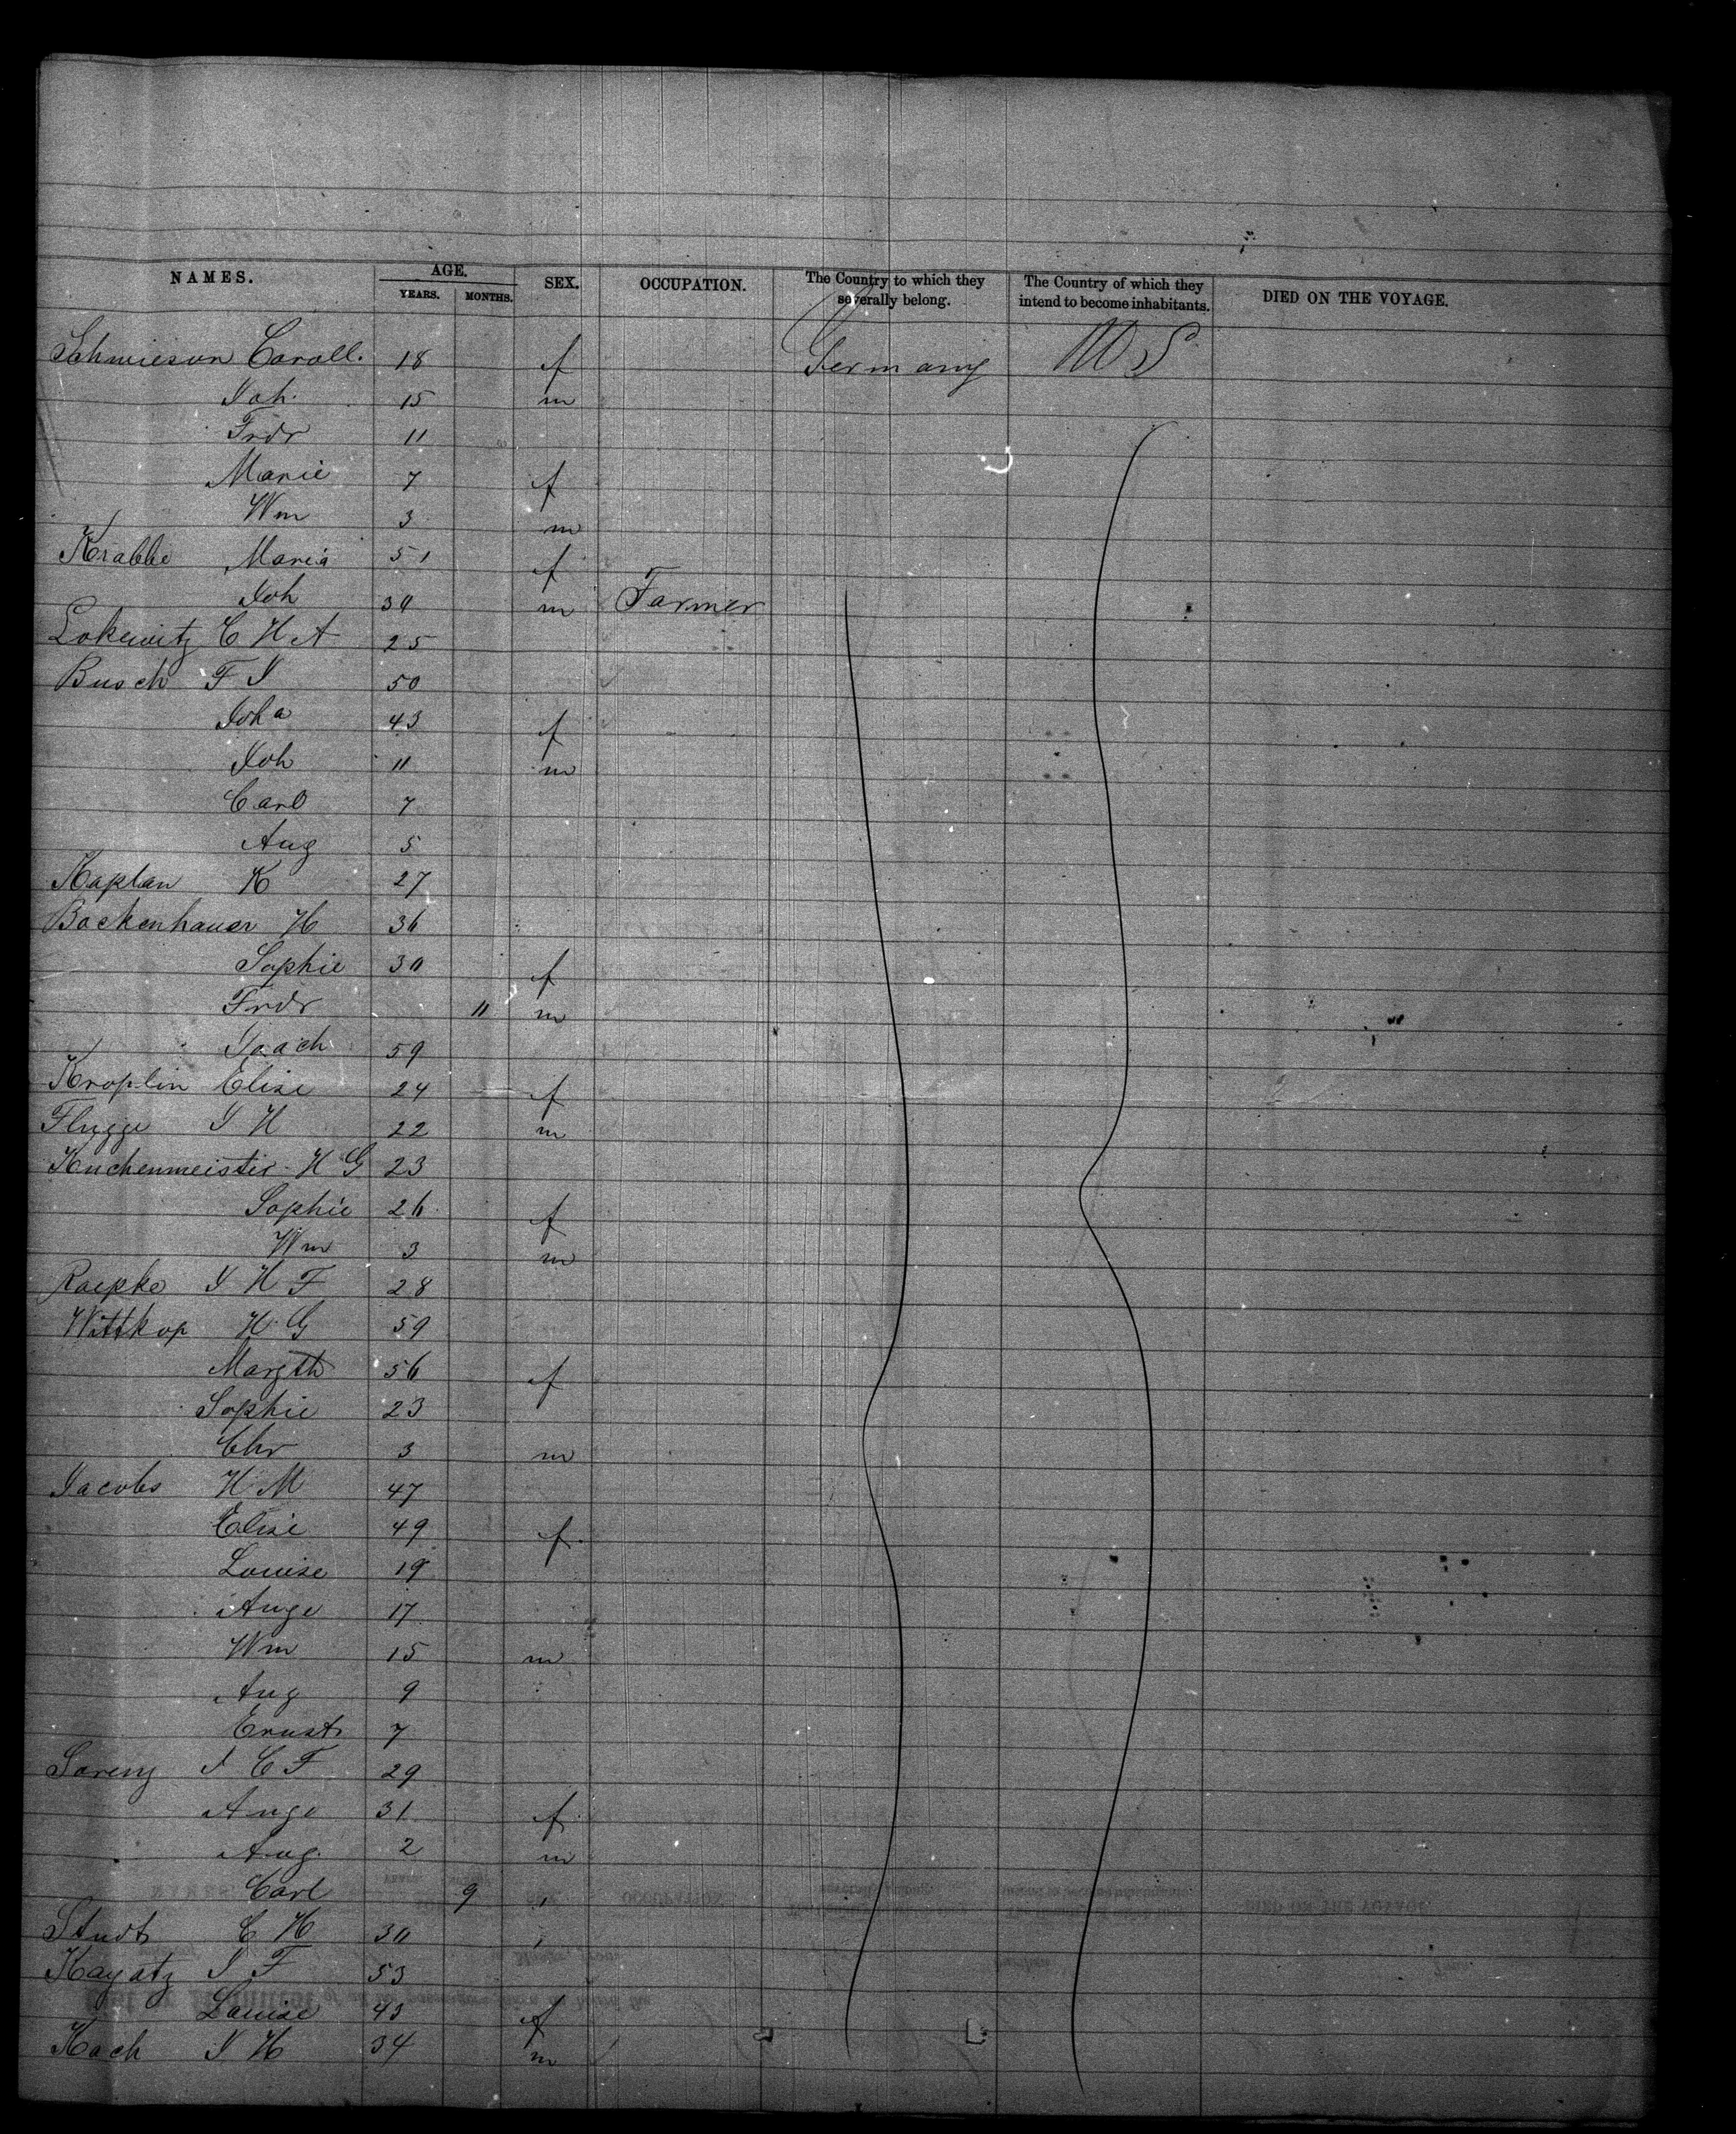 NAMES. AGE. YEARS. MONTHS. SEX. OCCUPATION. The Country to which they severally belong. The Country of which they intend to become inhabitants. DIED ON THE VOYAGE.
Schmieson Caroll. 18 f Germany U S
Joh. 15 m
Frdr 11
Marie 7 f
Wm 3 m
Krabbe Maria 51 f
Joh 30 m Farmer
Lokewitz C H A 25
Busch F J 50
Joha 43 f
Joh 11 m
Carl 7
Aug 5
Kaplan K 27
Bockenhauer H 36
Sophie 30 f
Frdr 11 m
Joach 59
Kroplin Elise 24 f
Flugge J H 22 m
Kuchenmeister H G 23
Sophie 26 f
Wm 3 m
Raepke J H F 28
Wittkop H G 59
Margth 56 f
Sophie 23
Chr 3 m
Jacobs H M 47
Elise 49 f
Louise 19
Auge 17
Wm 15 m
Aug 9
Ernst 7
Soreny J C F 29
Auge 31 f
Aug. 2 m
Carl 9
Studt C H 30
Kayatz J F 53
Louise 43 f
Koch J H 34 m